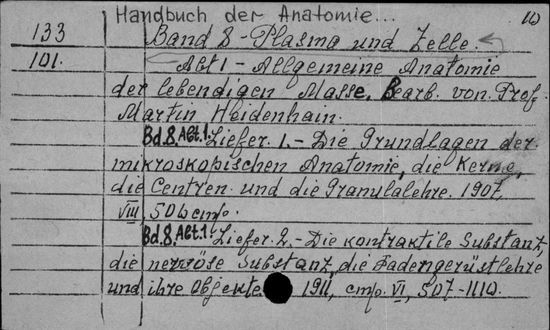 Handbuch der Anatomie... 10
133 Band 8 - Plasma und Zelle.
101. Abt 1 - Allgemeine Anatomie
der lebendigen Masse. Bearb. von Prof.
Martin Heidenhain.
Bd.8.Abt.1. Liefer. 1. - Die Grundlagen der
mikroskopischen Anatomie, die Kerne,
die Centren und die Granulalehre. 1907,
VIII, 506 стр.
Bd.8.Abt.1. Liefer. 2. - Die kontraktile Substanz,
die nervöse Substanz, die Fadengerüstlehre
und ihre Objekte 1911, стр. VI, 507-1110.